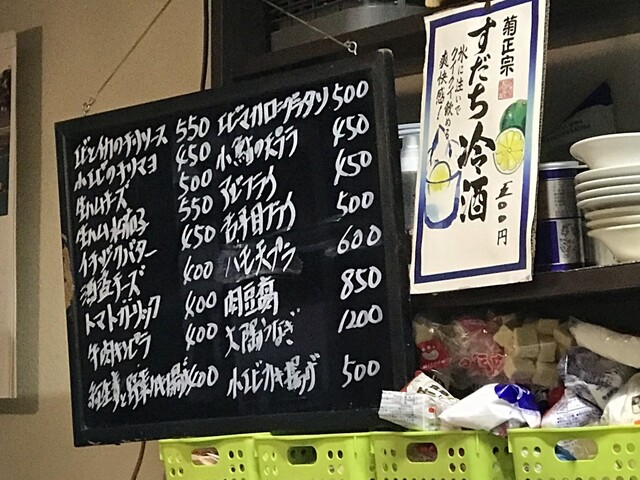 エビとイカのチリソース 550
小エビのチリマヨ 450
生ハムチーズ 500
生ハム水茄子 550
イチヂクバター 450
酒盗チーズ 400
トマトガーリック 400
牛肉キンピラ 400
紅生姜と野菜かき揚げ 400
エビマカロニグラタン 500
小鮎の天プラ 450
アジフライ 450
フライ 500
ハモ天プラ 600
肉豆腐 850
うなぎ 1200
小エビかき揚げ 500
菊正宗
すだち冷酒
氷に注いで
クイクイ飲める
爽快感!
五〇〇円